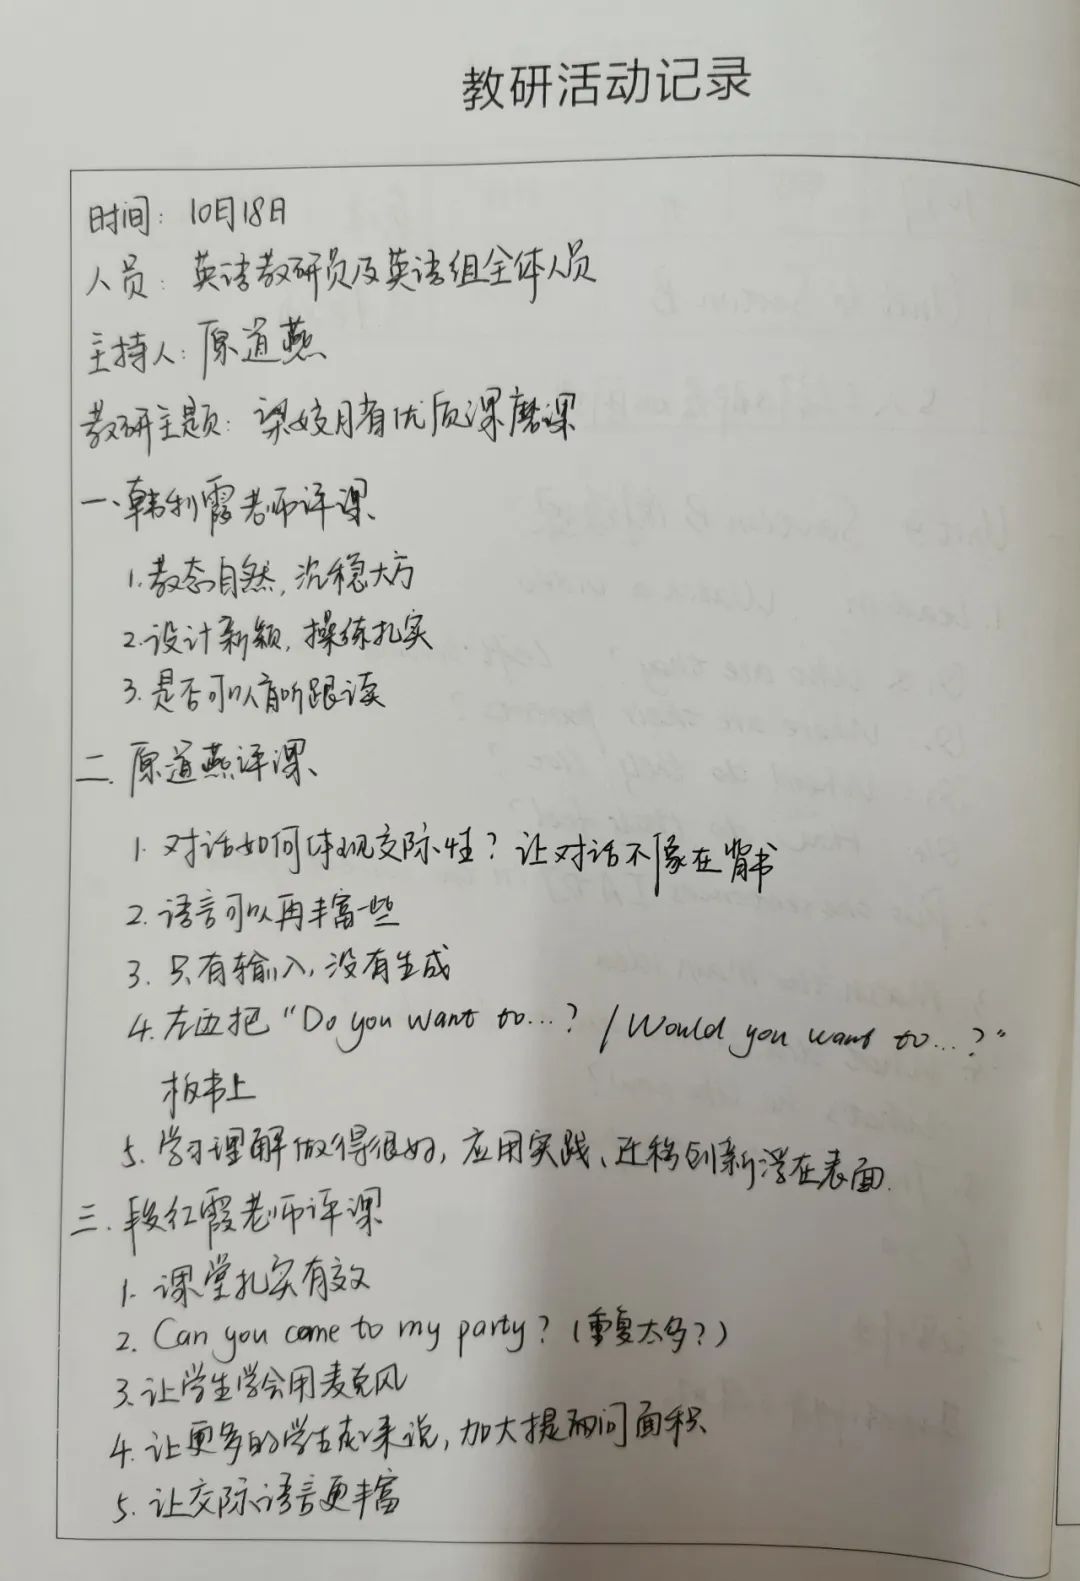 教研活动记录
时间：10月18日
人员：英语教研员及英语组全体人员
主持人：原道燕
教研主题：梁姣月省优质课磨课
一、韩利霞老师评课、
1.教态自然，沉稳大方
2.设计新颖，操练扎实
3.是否可以有听跟读
二.原道燕评课、
1.对话如何体现交际性？让对话不像在背书
2.语言可以再丰富一些
3.只有输入，没有生成
4.左边把“Do you want to...？/Would you want to...？”
板书上
5.学习理解做得很好，应用实践、迁移创新浮在表面.
三.段红霞老师评课
1.课堂扎实有效
2.Can you come to my party？（重复太多？）
3.让学生学会用麦克风
4.让更多的学生起来说，加大提问面积
5.让交际语言更丰富